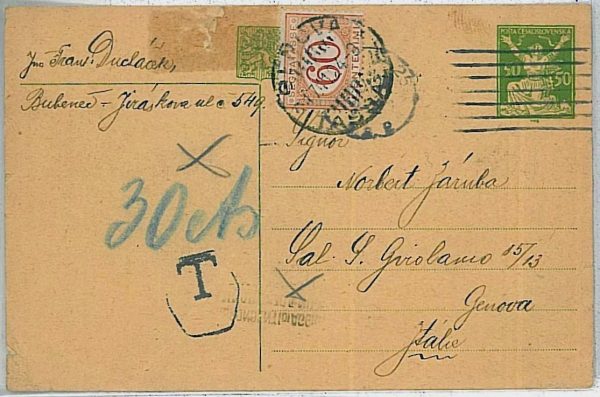 Jng Frant. Dudáček,
Bubeneč – Jiráskova ul č 549.
60
GENOVA
TASSE
POŠTA ČESKOSLOVENSKÁ
50 50
30 cts
T
Signor
Norbert Járuba
Sal. S. Girolamo 15/13
Genova
Itálie